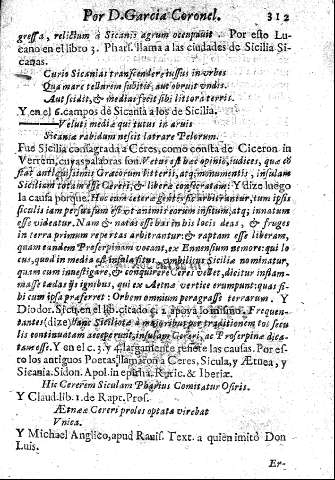 Por D. Garcia Coronel. 312
gressa, relictum à Sicanis agrum occupauit. Por esto Lu
cano en el libro 3. Phars. llama a las ciudades de Sicilia Si-
canas.
Curio Sicanias transcendere iussus in vrbes
Qua mare tellurem subitis aut obruit vndis.
Aut scidit, & medias fecit sibi littora terris.
Y en el 6. campos de Sicania a los de Sicilia.
Veluti mediæ qui tutus in aruis
Sicaniæ rabidum nescit latrare Pelorum.
Fue Sicilia consagrada a Ceres, como consta de Ciceron in
Verrem, cuyas palabras son. Vetus est hæc opinio, iudices, quæ cō
stat antiquissimis Græcorum litteris, atq; monumentis, insulam
Siciliam totam esse Cereri, & liberæ consecratam: Y dize luego
la causa porque. Hoc cum ceteræ gentes sic arbitrantur, tum ipsis
siculis iam persuasum est vt animis eorum insitum, atq; innatum
esse videatur. Nam & natas esse has in his locis deas, & fruges
in terra primum repertas arbitrantur: & raptam esse liberam,
quam eandem Proserpinam vocant, ex Ennensium nemore: qui lo
cus, quod in media est insula situs, vmbilicus Siciliæ nominatur,
quam cum inuestigare, & conquirere Ceres vellet, dicitur inflam-
masse tædas ijs ignibus, qui ex Aetnæ vertice erumpunt: quas si-
bi cum ipsa præferret: Orbem omnium peragrasse terrarum. Y
Diodor. Sicu. en el lib. citado c. 2. apoya lo mismo. Frequen-
antes (dize) hanc Siciliotæ à maioribus per traditionem toti secu
lis continuatam acceperunt, insulam Cereri, ac Proserpinæ dica-
tam esse. Y en el c. 3. y 4. largamente refiere las causas. Por es-
to los antiguos Poetas llamaron a Ceres, Sicula, y Ætnea, y
Sicania. Sidon. Apol. in epitha. Ruric. & Iberiæ.
Hic Cererem Siculam Pharius Comitatur Osiris.
Y Claud. lib. 1. de Rapt. Pros.
Ætneæ Cereri proles optata virebat
Vnica.
Y Michael Anglico, apud Rauis. Text. a quien imitò Don
Luis.
Er-